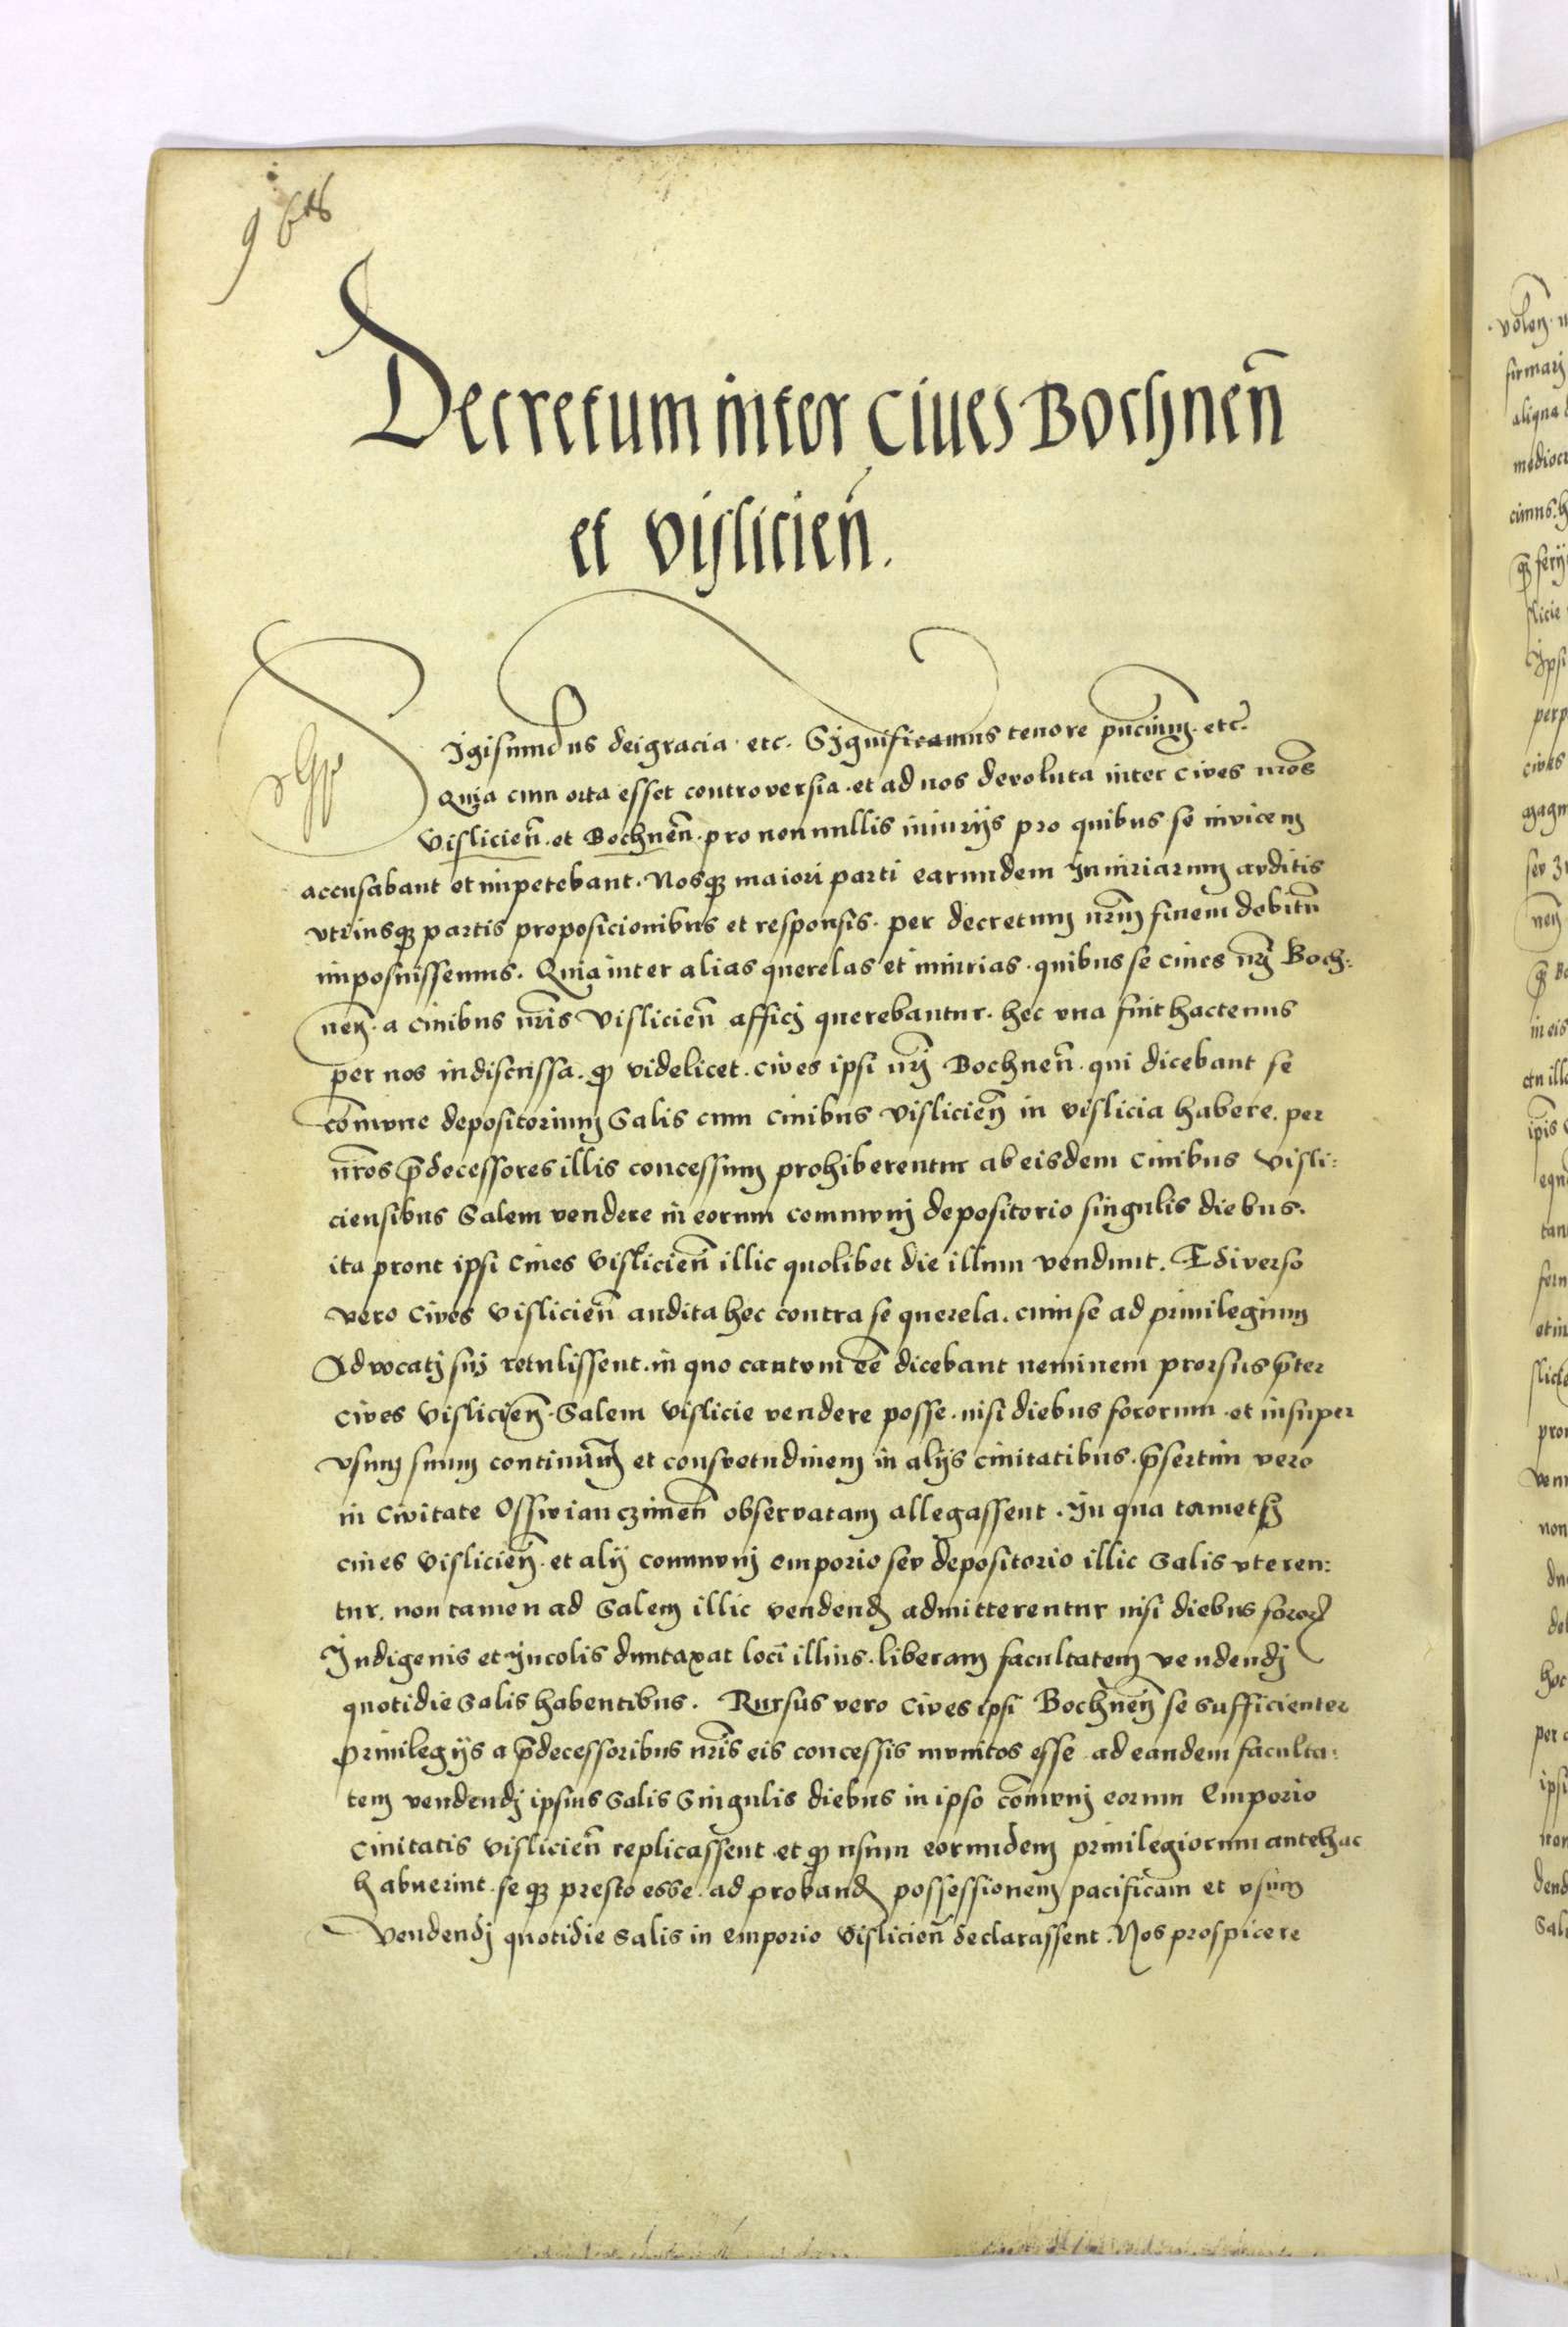 Decretum inter Ciues Bochnen̄
et vislicien̄.
Sigismundus dei gracia · etc. Significamus tenore pn̄cium̄. etc̄.
Quia cum orta esset controversia · et ad nos devoluta inter cives nr̄os
Vislicien̄ · et Bochnen̄ · pro nonnullis iniurijs pro quibus se invicem
accusabant et impetebant. Nosqꝫ maiori parti earundem Iniuriarum auditis
vtriusqꝫ partis proposicionibus et responsis · per decretum nr̄um finem debitū
imposuissemus. Quia inter alias querelas et iniurias · quibus se ciues nr̄j Boch:
nen̄ · a ciuibus nr̄is Vislicien̄ afficj querebantur · hec vna fuit hactenus
per nos indiscussa · ꝙ videlicet · cives ipsi nr̄j Bochnen̄ · qui dicebant se
com̄vne depositorium Salis cum ciuibus vislicien̄ in vislicia habere · per
nr̄os p̄decessores illis concessum prohiberentur ab eisdem ciuibus Visli:
ciensibus Salem vendere in eorum communj depositorio singulis diebus.
ita prout ipsi Ciues Vislicien̄ illic quolibet die illum vendunt. E diverso
vero Cives vislicien̄ audita hec contra se querela · cum se ad priuilegium
Advocatj sui retulissent · in quo cautvm eē dicebant neminem prorsus p̄ter
cives Vislicien̄ · Salem vislicie vendere posse · nisi diebus fororum · et insuper
vsum suum continuum et consvetudinem in alijs ciuitatibus · p̄sertim vero
in Civitate Osswianczimen̄ observatam allegassent · In qua tametsi
ciues Vislicien̄ · et alij commvnj emporio sev depositorio illic Salis vteren:
tur. non tamen ad Salem illic vendend̄ admitterentur nisi diebus fororꝝ
Indigenis et Incolis duntaxat loci illius · liberam facultatem vendendj
quotidie Salis habentibus. Rursus vero Cives ipsi Bochnen̄ se sufficienter
priuilegijs a p̄decessoribus nr̄is eis concessis mvnitos esse ad eandem faculta:
tem vendendj ipsius Salis Singulis diebus in ipso com̄vnj eorum Emporio
Ciuitatis vislicien̄ replicassent · et ꝙ usum eorundem priuilegiorum antehac
habuerint · seqꝫ presto esse · ad proband̄ possessionem pacificam et vsum
Vendendj quotidie Salis in emporio Vislicien̄ declarassent. Nos prospicere